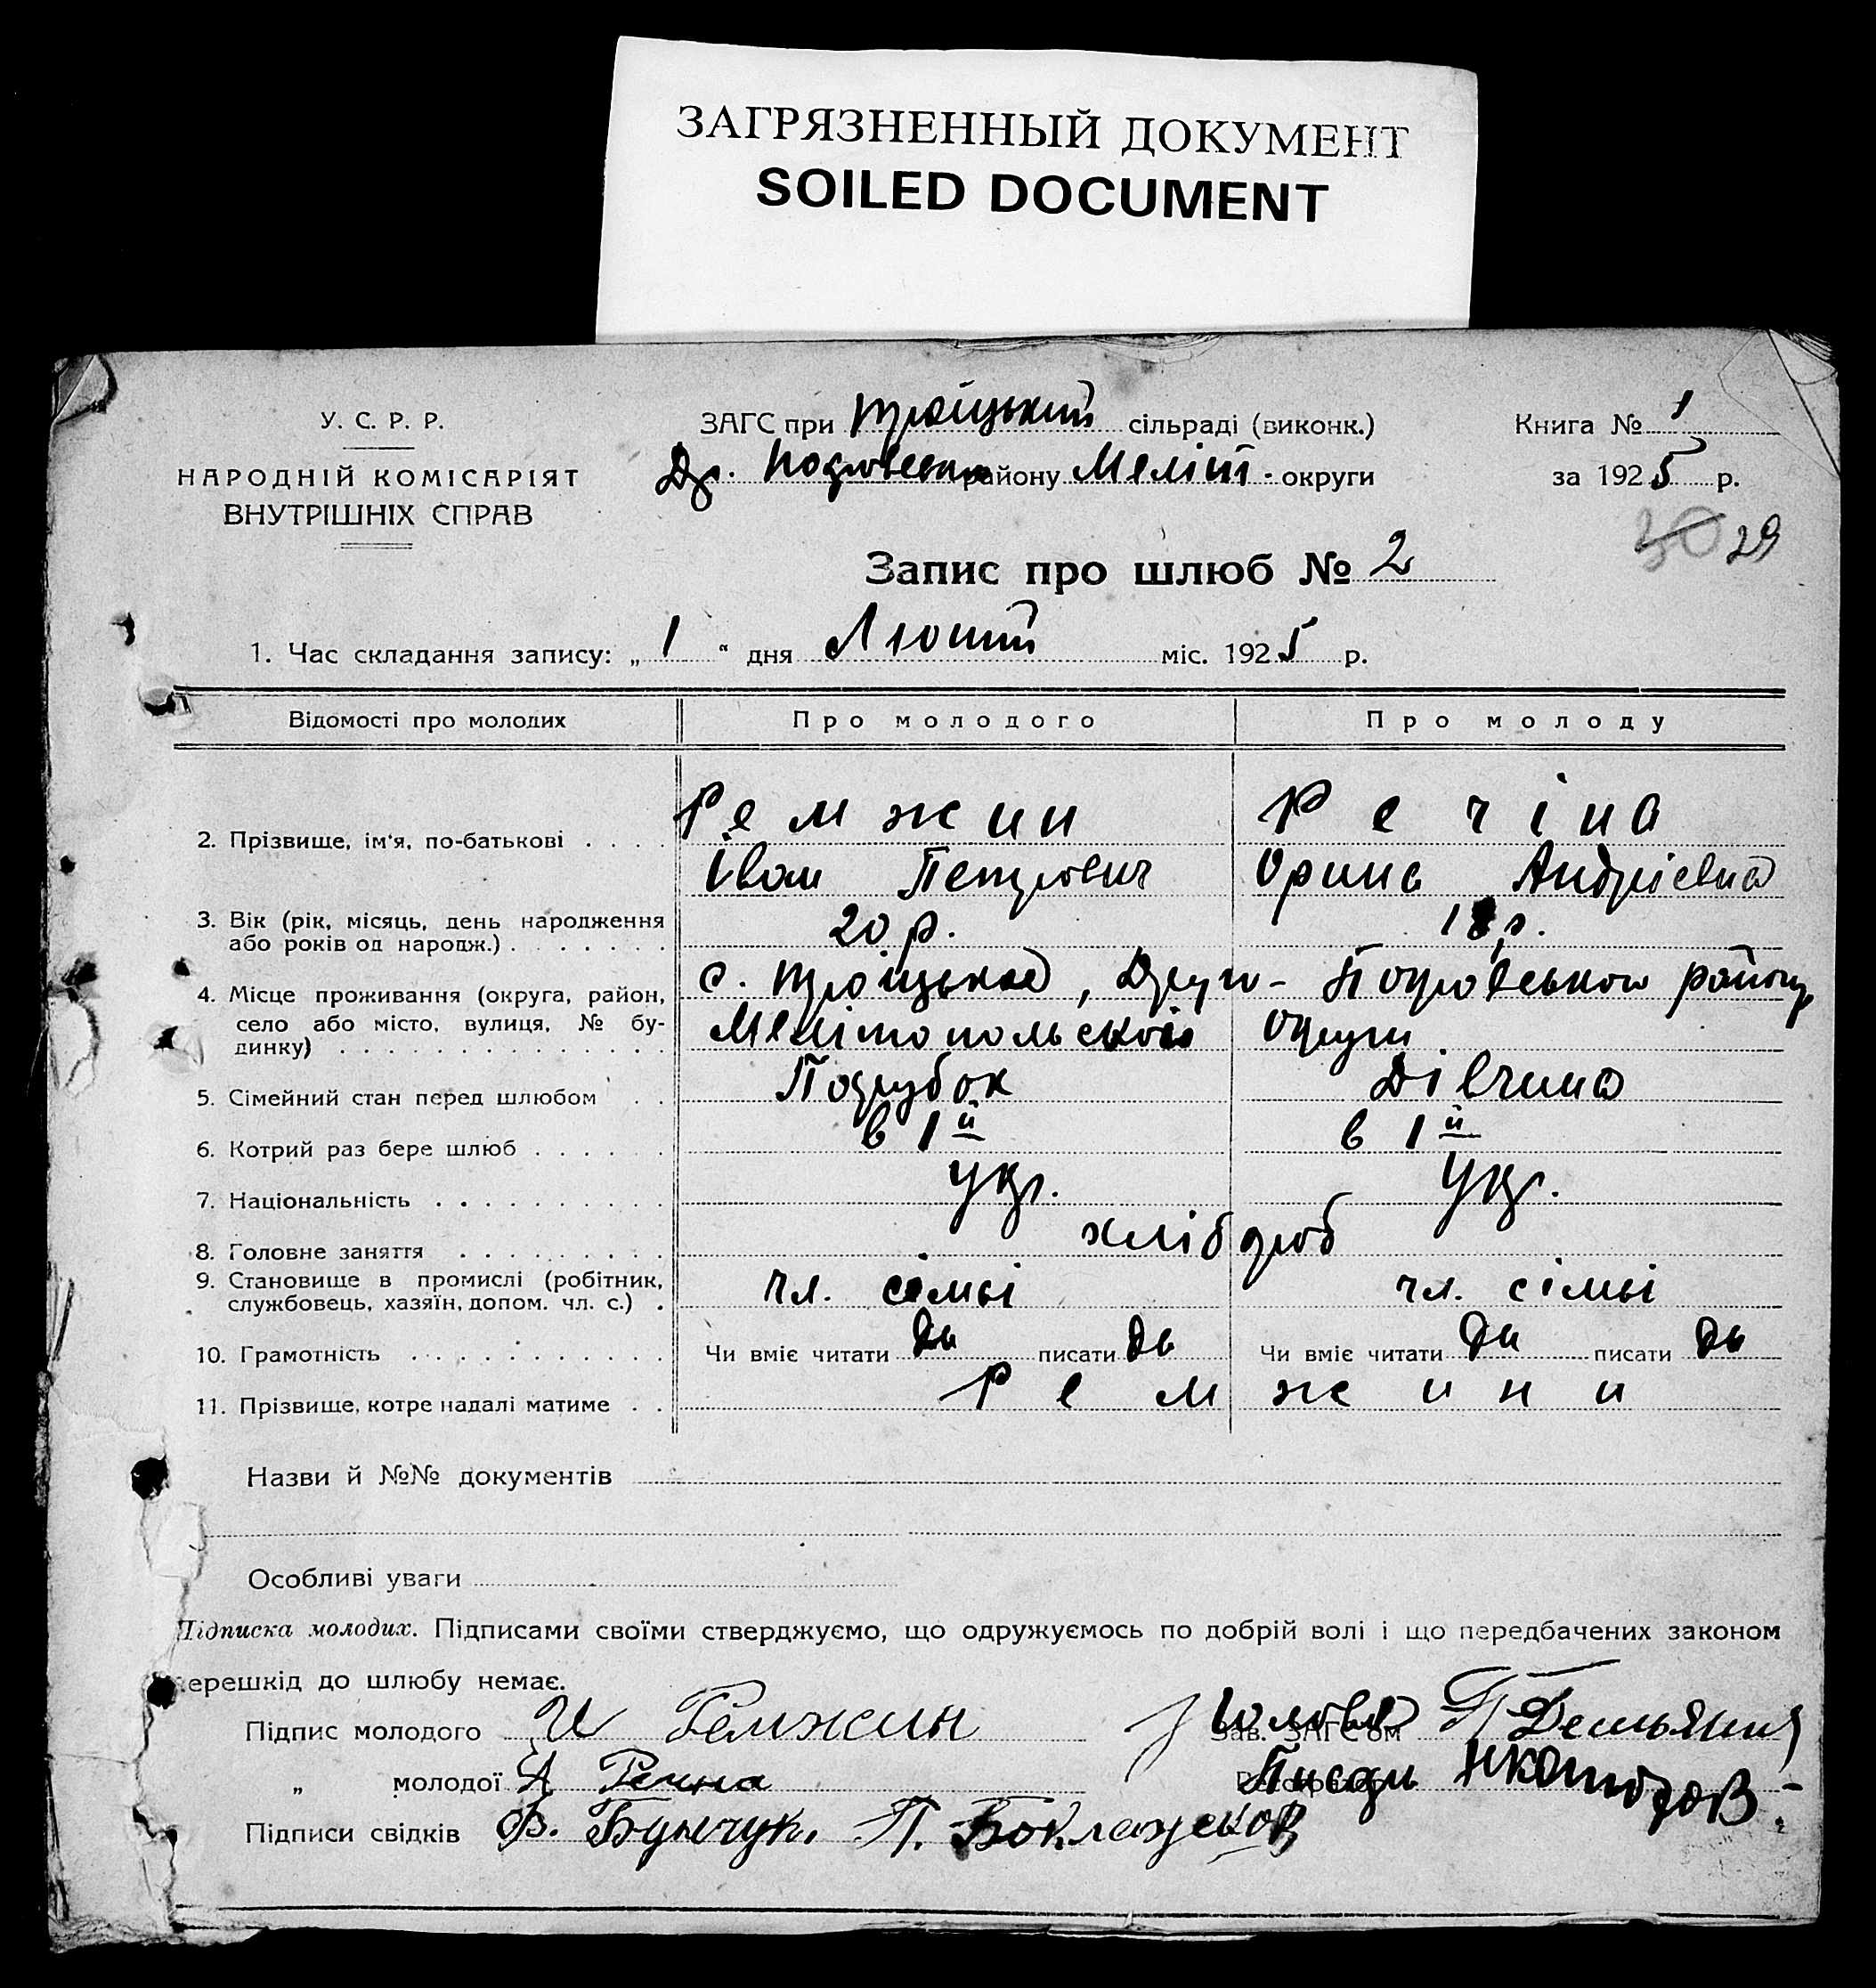 ЗАГРЯЗНЕННЫЙ ДОКУМЕНТ
SOILED DOCUMENT
У. С. Р. Р.
НАРОДНІЙ КОМІСАРІЯТ
ВНУТРІШНІХ СПРАВ
ЗАГС при Троїцький сільраді (виконк.)
Др. Покровськ району Меліт. округи
Книга № 1
за 1925 р.
30 29
Запис про шлюб № 2
1. Час складання запису: „ 1 “ дня Лютий міс. 1925 р.
Відомості про молодих Про молодого Про молоду
2. Прізвище, ім'я, по-батькові . . . . Ремжин Речіна
Іван Петрович Орина Андрієвна
3. Вік (рік, місяць, день народження
або років од народж.) . . . . . . . 20 р. 18 р.
4. Місце проживання (округа, район,
село або місто, вулиця, № бу-
динку) . . . . . . . . . . . . . .
с. Троїцькое, Друго-Покровського району
Мелітопольскоі Округи
5. Сімейний стан перед шлюбом . . Парубок Дівчина
6. Котрий раз бере шлюб . . . . . . в 1й в 1й
7. Національність . . . . . . . . . . Укр. Укр.
8. Головне заняття . . . . . . . . . хлібороб
9. Становище в промислі (робітник,
службовець, хазяїн, допом. чл. с.) . чл. сімьі чл. сімьі
10. Грамотність . . . . . . . . . . . Чи вміє читати да писати да Чи вміє читати да писати да
11. Прізвище, котре надалі матиме . . Ремжини
Назви й №№ документів
Особливі уваги
Підписка молодих. Підписами своїми стверджуємо, що одружуємось по добрій волі і що передбачених законом
перешкід до шлюбу немає.
Підпис молодого И Ремжин
Голова Зав. ЗАГС'ом П Демьянич
„ молодої А Речна
Писарь
Підписи свідків Ф. Бунчук, П. Баклажсков